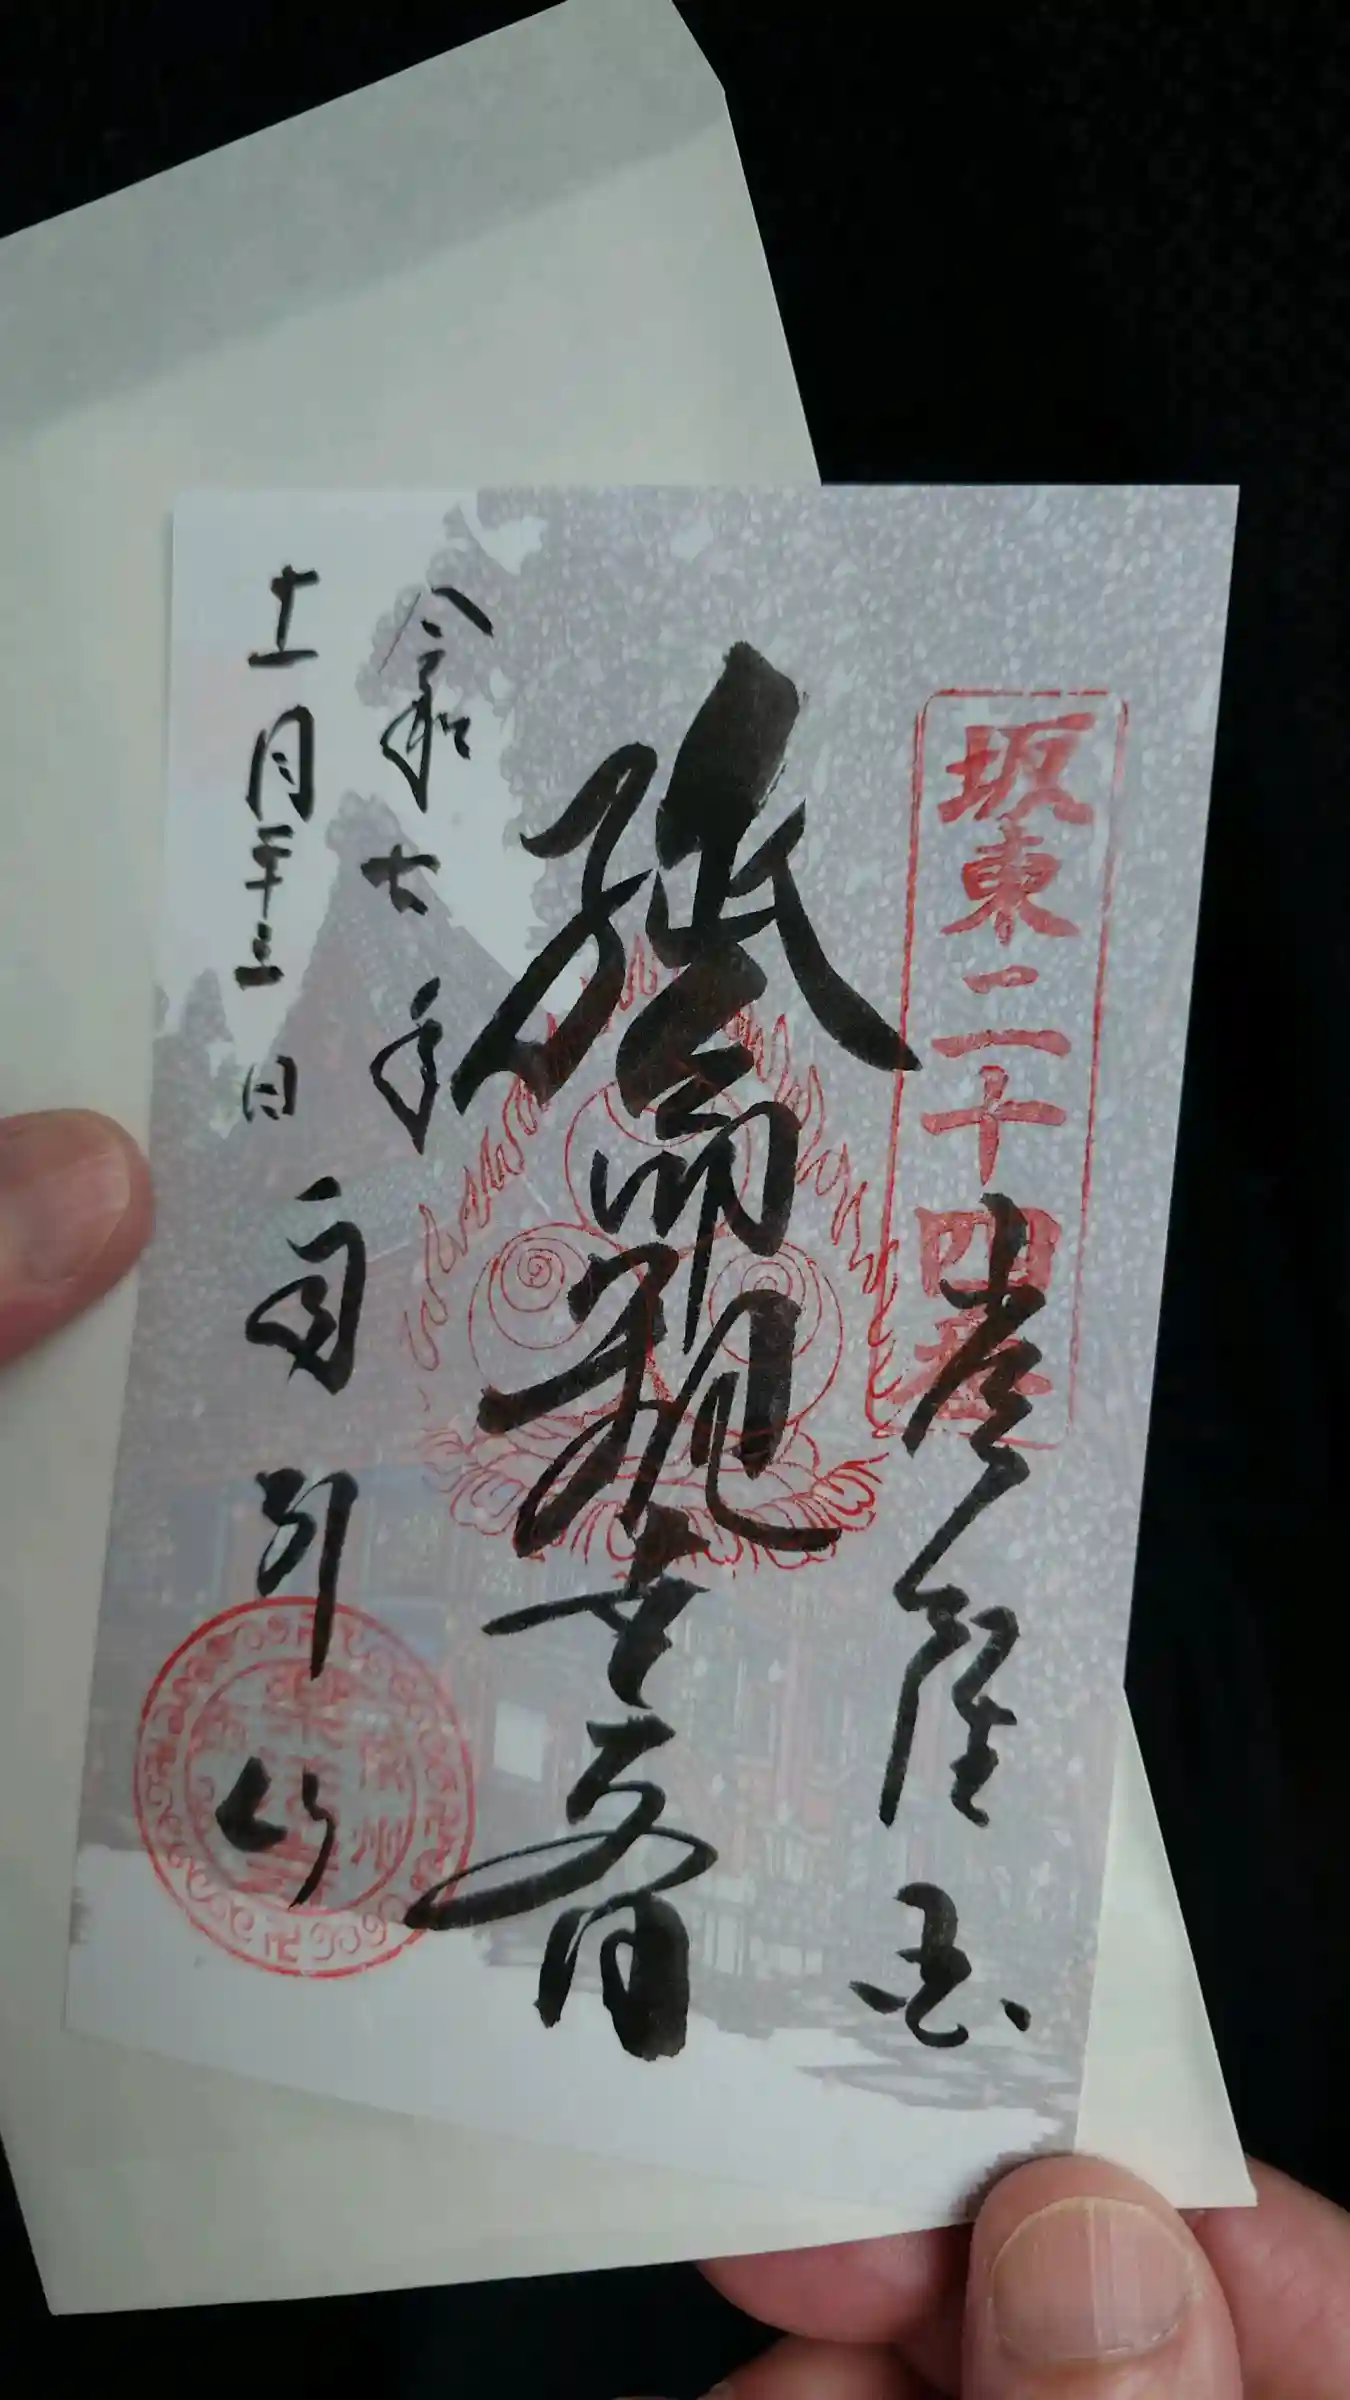 坂東二十四番
常陸国
延命観世音
令和七年
十一月二十三日
雨引山